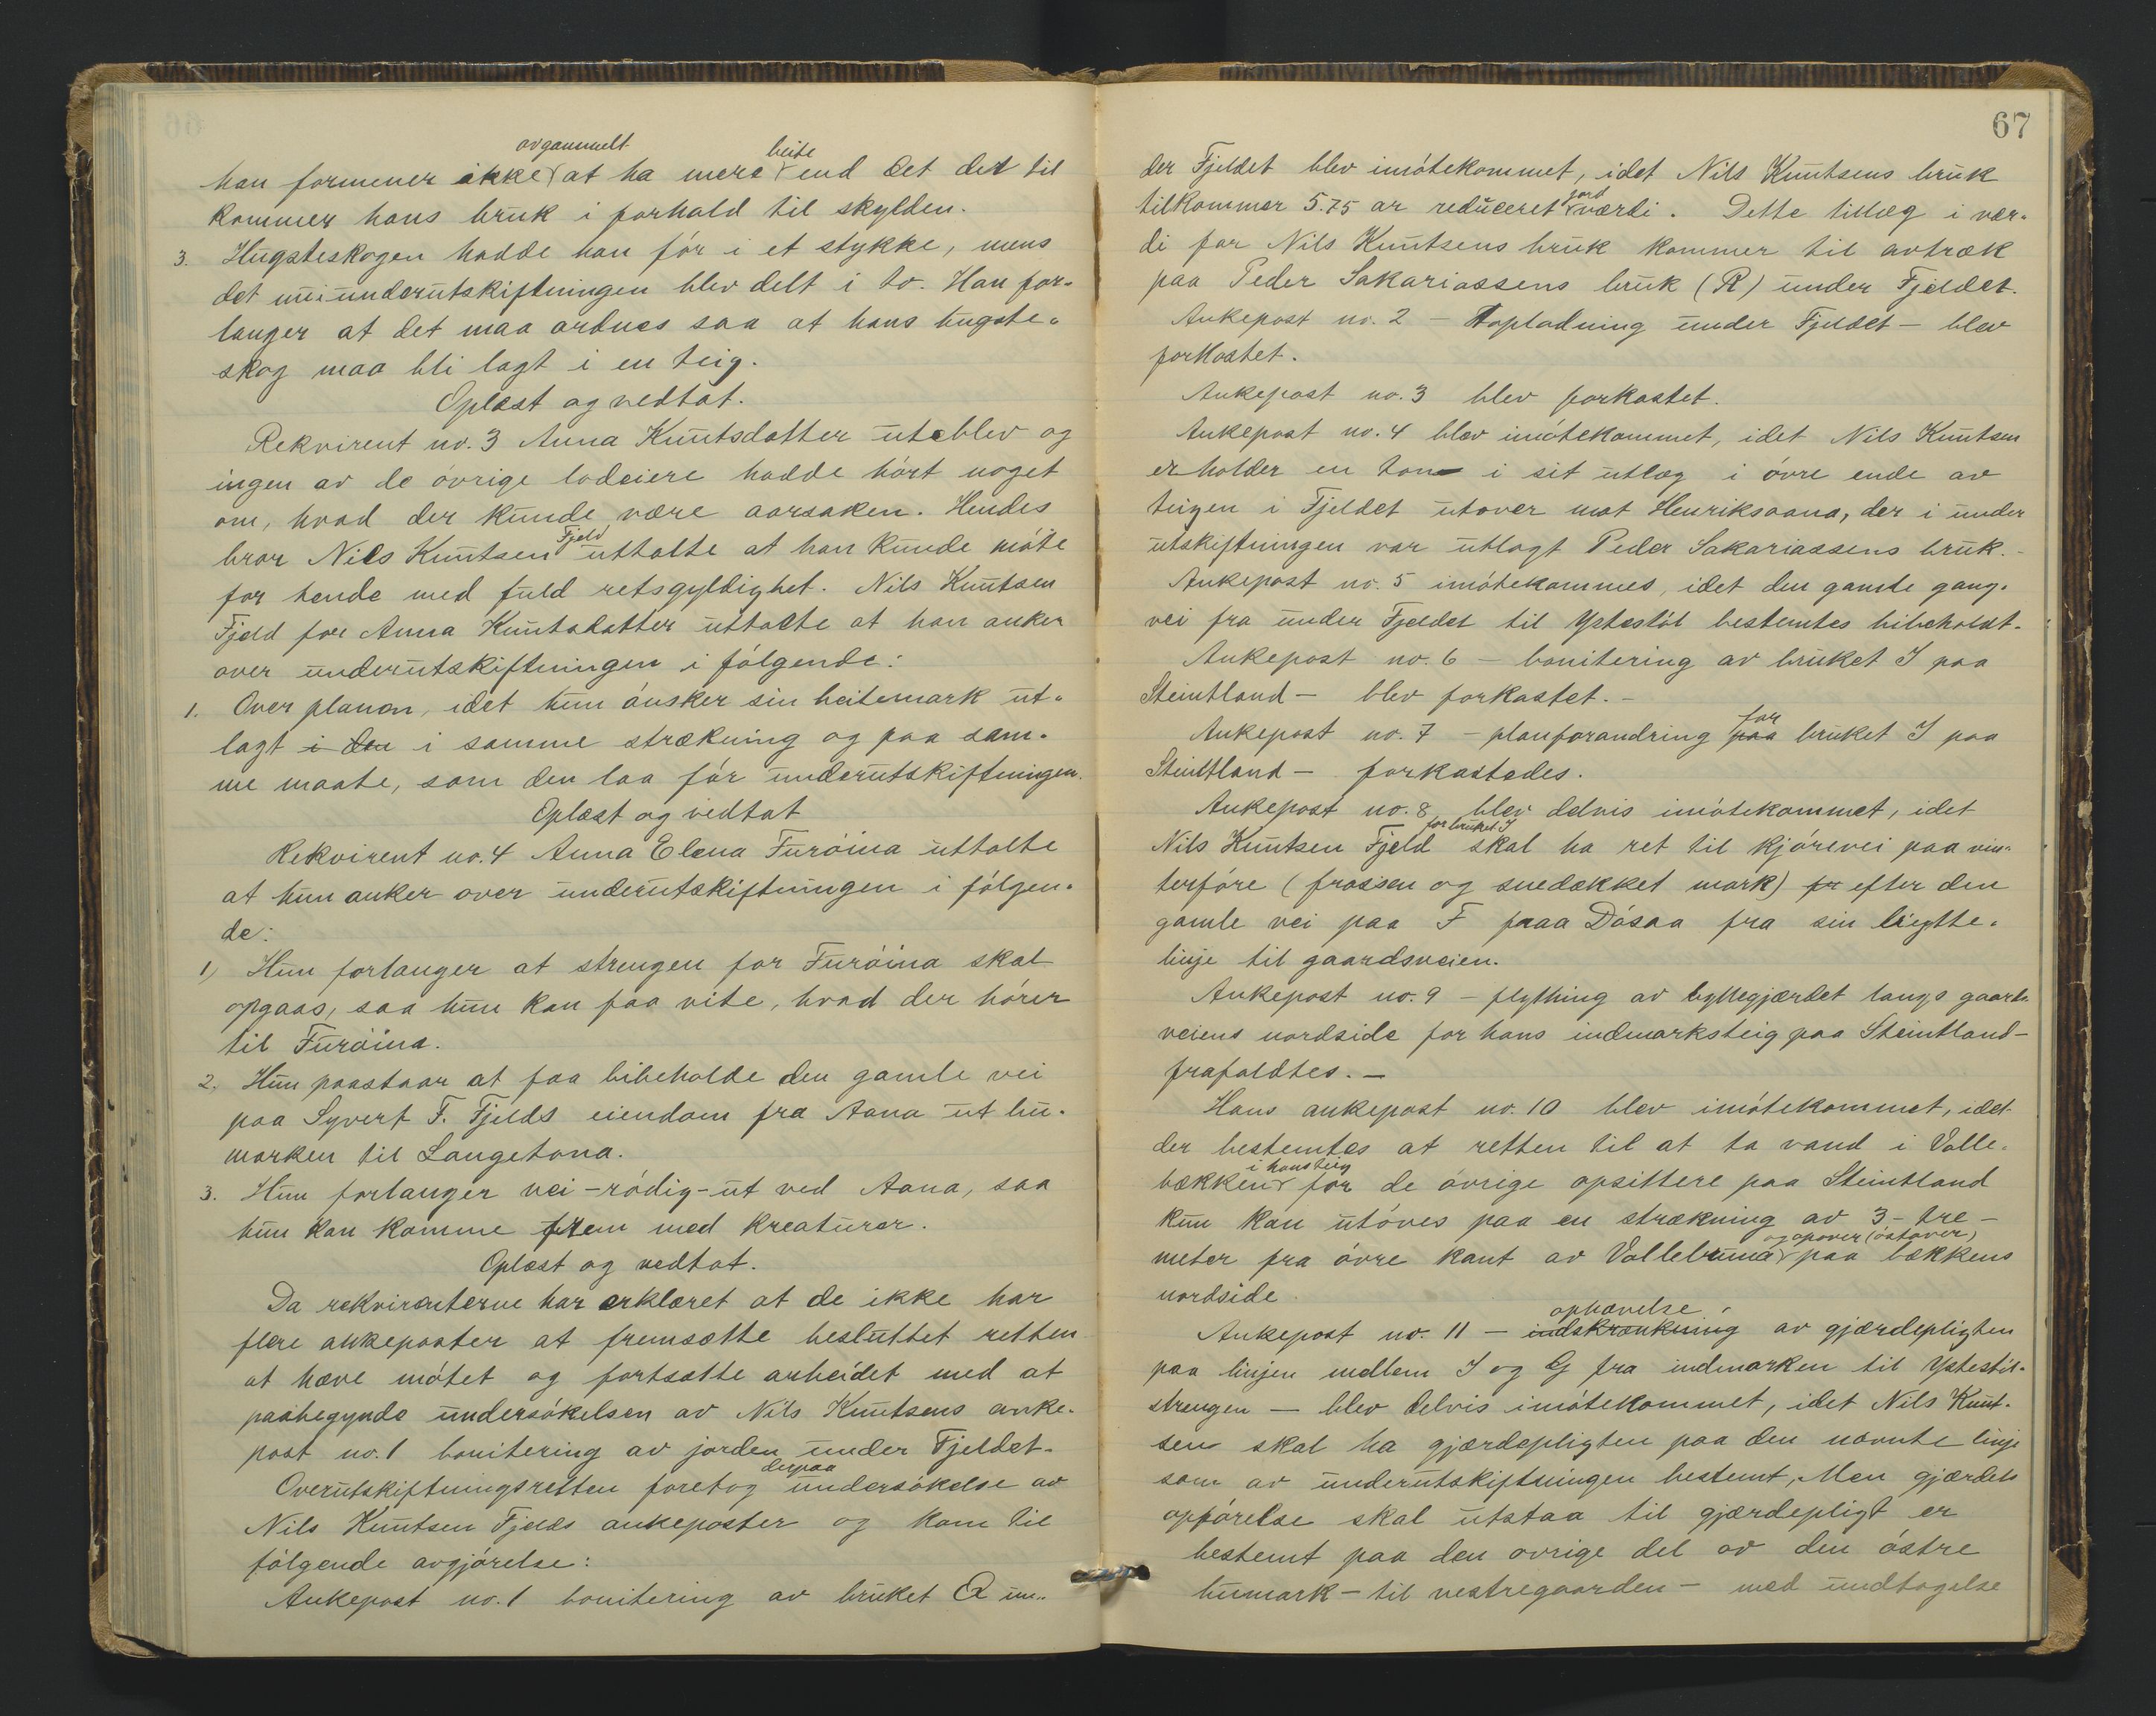 avgammelt beite
han formener ikke at ha mere end det det til
kommer hans bruk i forhold til skylden.
3. Hugsteskogen hadde han før i et stykke, mens
det underutskiftningen blev delt i to. Han for-
langer at det maa ordnes saa at hans hugste-
skog maa bli lagt i en teig.
Oplæst og vedtat.
Rekvirent no. 3 Anna Knutsdatter uteblev og
ingen av de øvrige lodeiere hadde hørt noget
om, hvad der kunde være aarsaken. Hendes
Fjeld
bror Nils Knutsen uttalte at han kunde møte
for hende med fuld retsgyldighet. Nils Knutsen
Fjeld for Anna Knutsdatter uttalte at han anker
over underutskiftningen i følgende:
1. Over planen, idet hun ønsker sin beitemark ut-
lagt i den i samme strækning og paa sam-
me maate, som den laa før underutskiftningen.
Oplæst og vedtat
Rekvirent no. 4 Anna Elena Furøina uttalte
at hun anker over underutskiftningen i følgen-
de:
1) Hun forlanger at strengen for Furøina skal
opgaas, saa hun kan faa vite, hvad der hører
til Furøina.
2. Hun paastaar at faa bibeholde den gamle vei
paa Syvert F. Fjelds eiendom fra Aana ut bu-
marken til Langetona.
3. Hun forlanger vei - rødig - ut ved Aana, saa
hun kan komme frem med kreaturer.
Oplæst og vedtat.
Da rekvirenterne har erklæret at de ikke har
flere ankeposter at fremsætte besluttet retten
at hæve møtet og fortsætte arbeidet med at
paabegynde undersøkelsen av Nils Knutsens anke-
post no. 1 bonitering av jorden under Fjeldet.
derpaa
Overutskiftningsretten foretog undersøkelse av
Nils Knutsen Fjelds ankeposter og kom til
følgende avgjørelse:
Ankepost no. 1 bonitering av bruket Q un-
67
der Fjeldet blev imøtekommet, idet Nils Knutsens bruk
jord
tilkommer 5.75 ar reduceret værdi. Dette tillæg i vær-
di for Nils Knutsens bruk kommer til avtræk
paa Peder Sakariassens bruk (R) under Fjeldet.
Ankepost no. 2 - opladning under Fjeldet - blev
forkastet.
Ankepost no. 3 blev forkastet.
Ankepost no. 4 blev imøtekommet, idet Nils Knutsen
erholder en tone i sit utlæg i øvre ende av
teigen i Fjeldet utover mot Henriksaana, der i under
utskiftningen var utlagt Peder Sakariassens bruk.-
Ankepost no. 5 imøtekommes, idet den gamle gang-
vei fra under Fjeldet til Ystestøl bestemtes bibeholdt.
Ankepost no. 6 - bonitering av bruket I paa
Steintland - blev forkastet. -
for
Ankepost no. 7 - planforandring paa bruket I paa
Steintland - forkastedes.
Ankepost no. 8 blev delvis imøtekommet, idet
for bruket I
Nils Knutsen Fjeld skal ha ret til kjørevei paa vin-
terføre (frossen og snedækket mark) fr efter den
gamle vei paa F paa Døsaa fra sin
linje til gaardsveien.
Ankepost no. 9 - flytning av byttegjærdet langs gaards
veiens nordside for hans indmarksteig paa Steintland -
frafaldtes. -
Hans ankepost no. 10 blev imøtekommet, idet
der bestemtes at retten til at ta vand i Volle-
i hans teig
bækken for de øvrige opsittere paa Steintland
kun kan utøves paa en strækning av 3 - tre -
og opover (østover)
meter fra øvre kant av Vollebruna paa bækkens
nordside.
ophævelse
Ankepost no. 11 - indskrænkning av gjærdepligten
paa linjen mellem I og G fra indmarken til Ystestøl-
strengen - blev delvis imøtekommet, idet Nils Knut-
sen skal ha gjærdepligten paa den nævnte linje
som av underutskiftningen bestemt, Men gjærdets
opførelse skal utstaa til gjærdepligt er
bestemt paa den øvrige del av den østre
bumark - til vestregaarden - med undtagelse